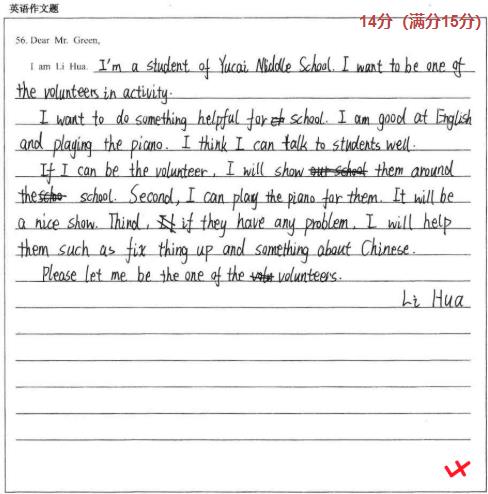 英语作文题
14分（满分15分）
56. Dear Mr. Green,
I am Li Hua. I'm a student of Yucai Middle School. I want to be one of
the volunteers in activity.
I want to do something helpful for school. I am good at English
and playing the piano. I think I can talk to students well.
If I can be the volunteer, I will show our school them around
the scho school. Second, I can play the piano for them. It will be
a nice show. Third, If if they have any problem, I will help
them such as fix thing up and something about Chinese.
Please let me be the one of the volu volunteers.
Li Hua